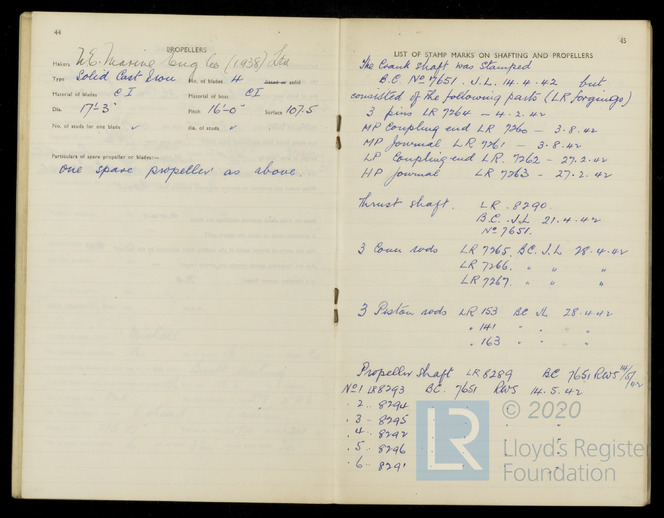 44
PROPELLERS
Makers N.E. Marine Eng Co (1938) Ltd
Type Solid Cast Iron No. of blades 4 solid
Material of blades C I Material of boss C I
Dia. 17'-3" Pitch 16'-0" Surface 107.5
No. of studs for one blade ✓ dia. of studs ✓
Particulars of spare propeller or blades:—
One spare propeller as above.
45
LIST OF STAMP MARKS ON SHAFTING AND PROPELLERS
The Crank shaft was stamped
B.C. No 7651. J.L. 14.4.42 but
consisted of the following parts (LR forgings)
3 pins LR 7264 - 4.2.42
MP Coupling end LR 7260 - 3.8.42
MP Journal LR 7261 - 3.8.42
LP Coupling end LR. 7262 - 27.2.42
HP Journal LR 7263 - 27.2.42
Thrust shaft. LR. 8290.
B.C. J.L 21.4.42
No 7651.
3 Conn rods LR 7265. BC. J.L 28.4.42
LR 7266. " " "
LR 7267. " " "
3 Piston rods LR 153 BC JL 28.4.42
" 141 " " "
" 163 " " "
Propeller shaft LR 8289 BC 7651 RWS 14/5/42
No 1 LR 8293 BC. 7651 RWS 14.5.42
" 2 " 8294
" 3 " 8295
" 4 " 8292
" 5 " 8296
" 6 " 8291
LR © 2020
Lloyd's Register
Foundation